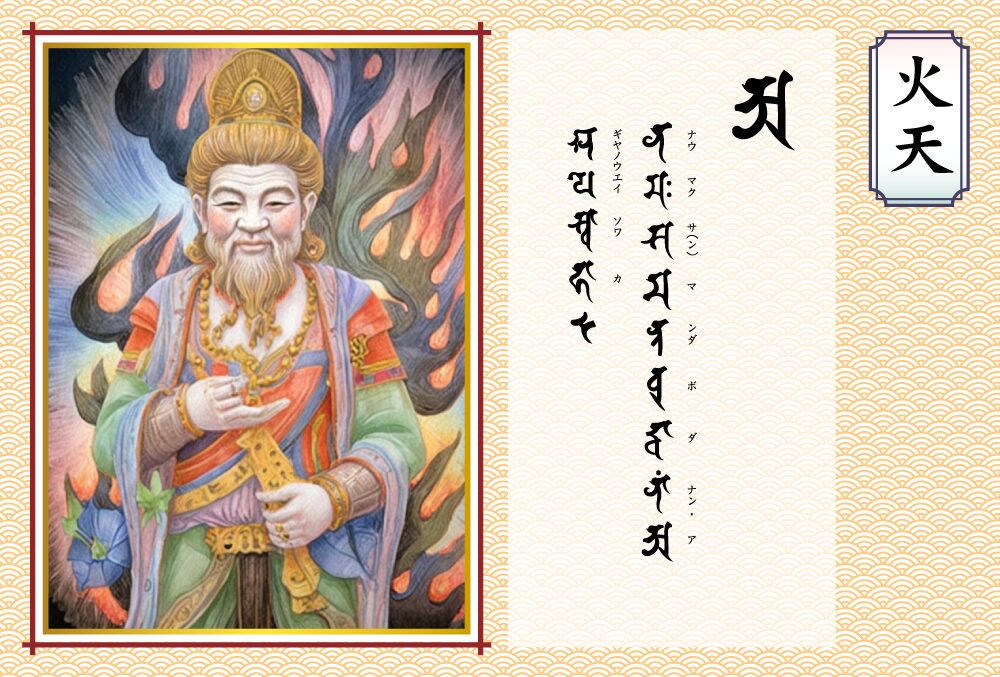 火天
𑖀
ナウ マク サ(ン) マ ンダ ボ ダ ナン・ア
𑖡𑖦𑖾𑖭𑖦𑖡𑖿𑖝𑖤𑖲𑖟𑖿𑖠𑖯𑖡𑖯𑖽𑖀
ギヤノウエイ ソワ カ